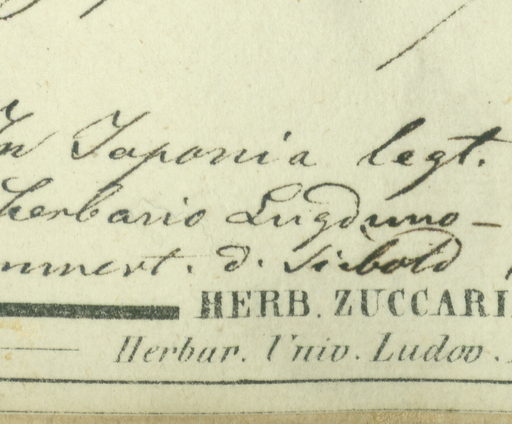 In Japonia legt.
herbario Lugduno-
mmert. d. Siebold
HERB. ZUCCARI
Herbar. Univ. Ludov.